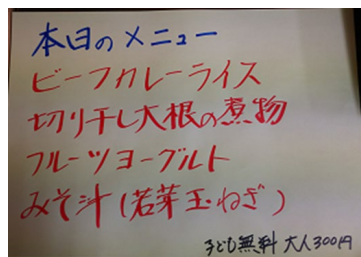 本日のメニュー
ビーフカレーライス
切り干し大根の煮物
フルーツヨーグルト
みそ汁(若芽玉ねぎ)
子ども無料 大人300円